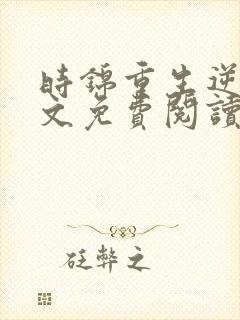 時錦重生逆
文免費閱讀
砭弊之